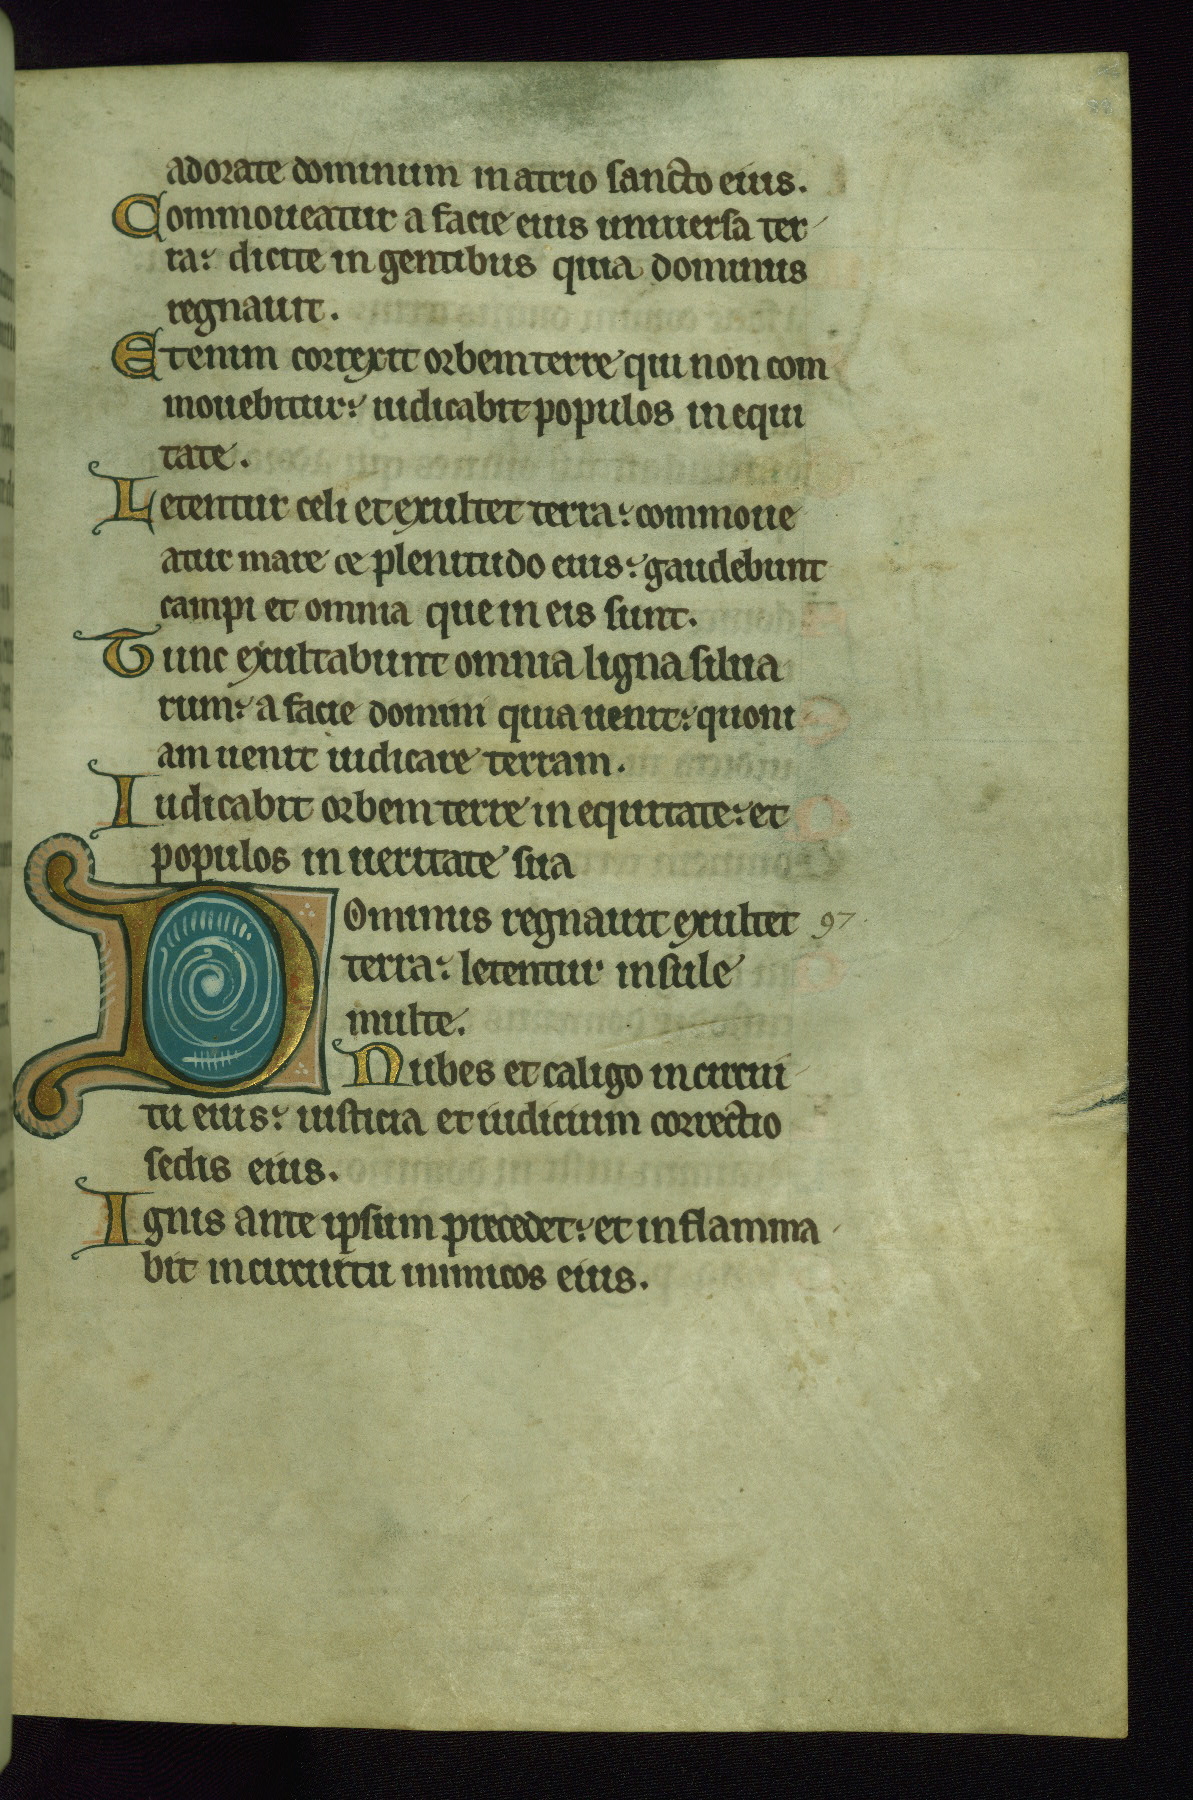 adorate dominum in atrio sancto eius.
Commoueatur a facie eius uniuersa ter
ra: dicite in gentibus quia dominus
regnauit.
Etenim correxit orbem terre qui non com
mouebitur: iudicabit populos in equi
tate.
Letentur celi et exultet terra: commoue
atur mare et plenitudo eius: gaudebunt
campi et omnia que in eis sunt.
Tunc exultabunt omnia ligna silua
rum: a facie domini quia uenit: quoni
am uenit iudicare terram.
Iudicabit orbem terre in equitate: et
populos in ueritate sua
Dominus regnauit exultet 97
terra: letentur insule
multe.
Nubes et caligo in circui
tu eius: iusticia et iudicium correctio
sedis eius.
Ignis ante ipsum precedet: et inflamma
bit in circuitu inimicos eius.